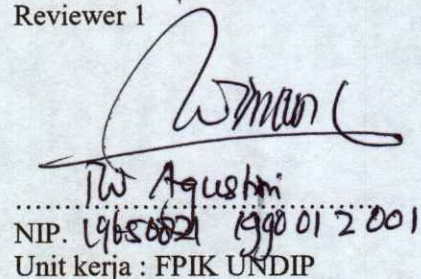 Reviewer 1
Tri W Agustini
NIP. 19650821 199001 2 001
Unit kerja : FPIK UNDIP